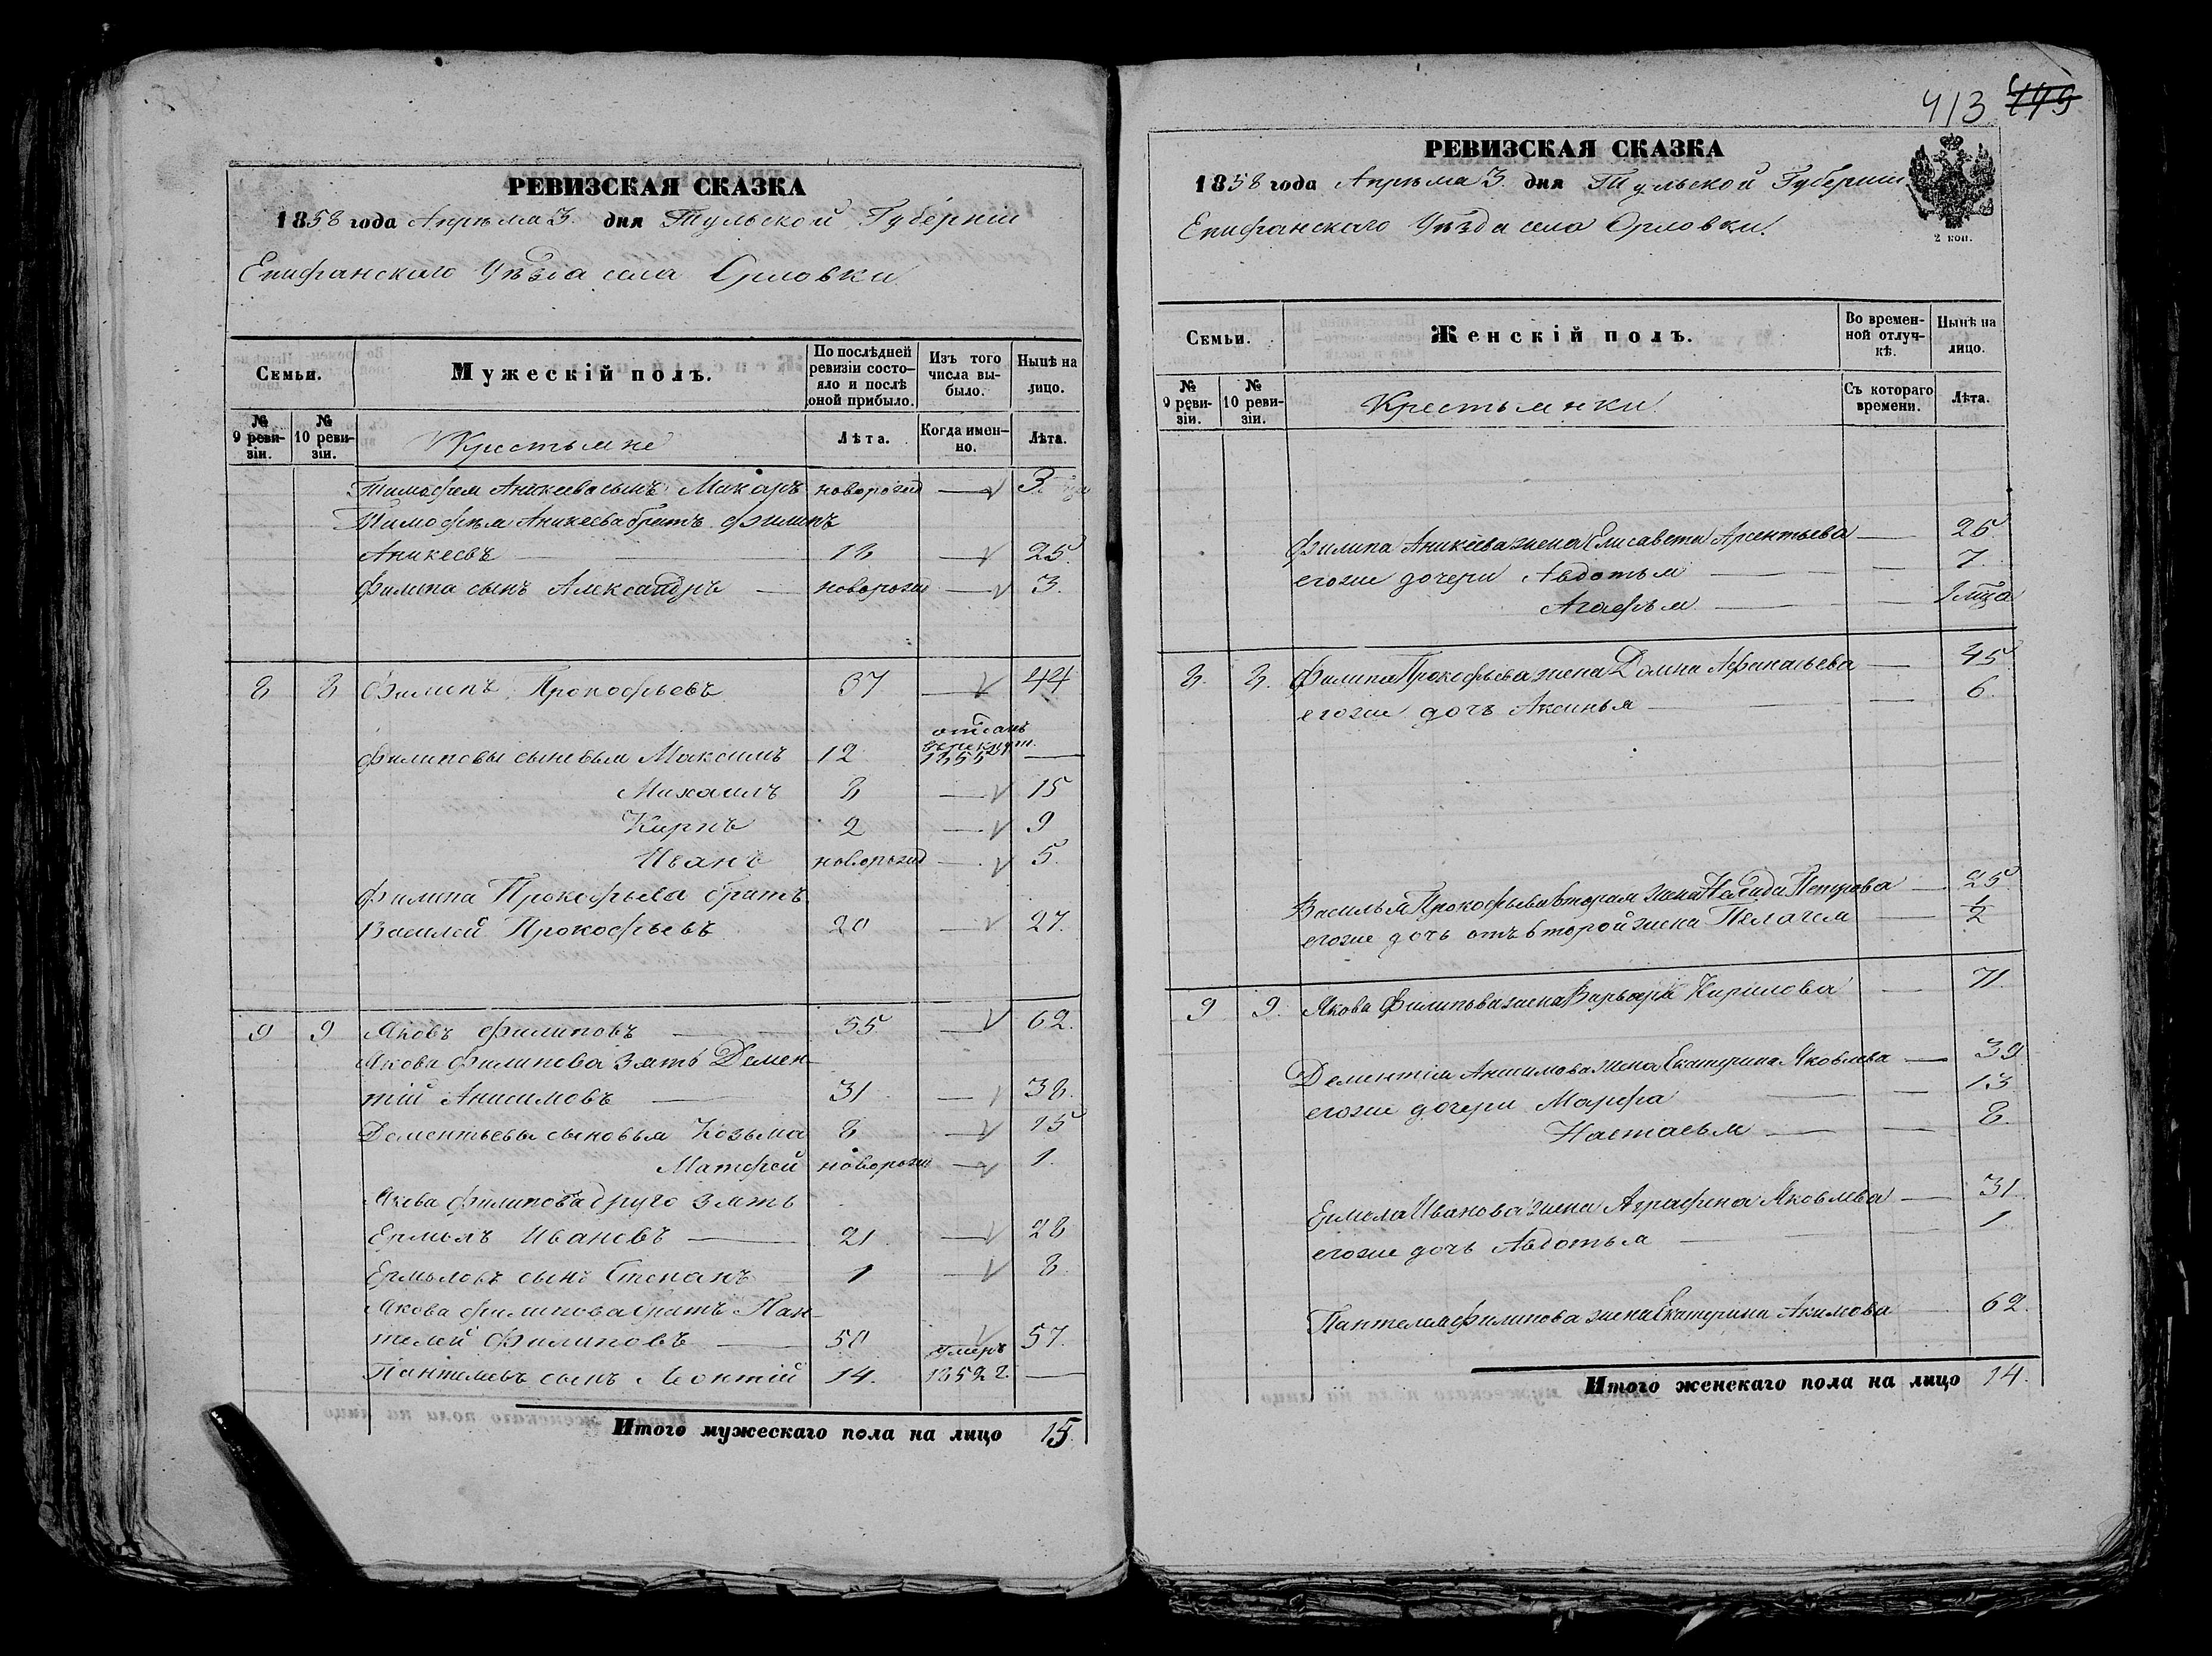 РЕВИЗСКАЯ СКАЗКА
1858 года Апрѣля 3. дня Тульской Губерніи
Епифанскаго Уѣзда села Орловки
Семьи.
Мужескій полъ.
По послѣдней ревизіи состояло и послѣ оной прибыло.
Изъ того числа выбыло.
Нынѣ на лицо.
№ 9 ревизіи.
№ 10 ревизіи.
Крестьяне
Лѣта.
Когда именно.
Лѣта.
Тимофея Аникеева сынъ Макаръ новорожд — 3
Тимофѣя Аникеева братъ Филипъ
Аникеевъ — 18 — 25.
Филипа сынъ Александръ — новорожд — 3.
8 8 Филипъ Прокофьевъ 37 — 44
отданъ
въ рекрут.
Филиповы сыновья Максимъ 12 1855 —
Михаилъ 8 — 15
Карпъ 2 — 9
Иванъ новорожд — 5.
Филипа Прокофьева братъ
Василей Прокофьевъ 20 — 27.
9 9 Яковъ Филиповъ — 55 — 62.
Якова Филипова зять Демен-
тій Анисимовъ — 31 — 38.
Дементьевы сыновья Козьма 8 — 15
Матфей новорожд — 1.
Якова Филипова друго зять
Ермолъ Ивановъ — 21 — 28
Ермоловъ сынъ Степанъ 1 — 8.
Якова Филипова братъ Пан-
телей Филиповъ — 50 57.
умеръ
Пантелеевъ сынъ Леонтій 14. 1852 г. —
Итого мужескаго пола на лицо 15.
413 449
РЕВИЗСКАЯ СКАЗКА
1858 года Апрѣля 3. дня Тульской Губерніи
Епифанскаго Уѣзда села Орловки.
2 коп.
Семьи.
Женскій полъ.
Во временной отлучкѣ.
Нынѣ на лицо.
№ 9 ревизіи.
№ 10 ревизіи.
Крестьянки
Съ котораго времени.
Лѣта.
Филипа Аникеева жена Елисавета Арсентьева — 25.
егоже дочери Авдотья — — 7.
Агафья — —
8. 8. Филипа Прокофьева жена Домна Афанасьева — 45
егоже дочь Аксинья — — 6.
Василья Прокофьева вторая жена Петрова — 25
егоже дочь отъ второй жена Пелагея — 1/2
9 9. Якова Филипова жена Варвара Кирилова — 71.
Дементія Анисимова жена Екатерина Яковлева — 39
егоже дочери Марфа — — 13
Настасья — — 8.
Ермола Иванова жена Аграфена Яковлева — 31.
егоже дочь Авдотья — — 1.
Пантелея Филипова жена Екатерина Акимова — 62.
Итого женскаго пола на лицо 14.